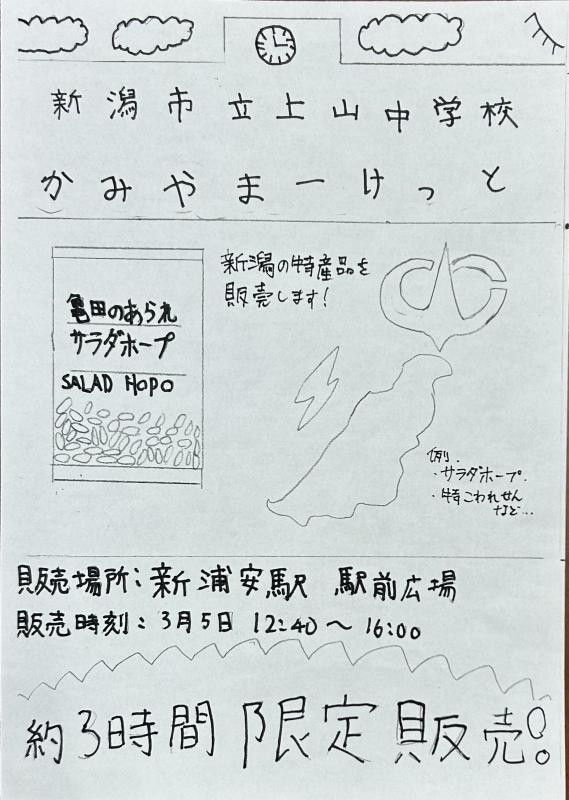 新潟市立上山中学校
かみやまーけっと
新潟の特産品を
販売します!
亀田のあられ
サラダホープ
SALAD HOPO
例.
・サラダホープ.
・特こわれせん
など...
販売場所:新浦安駅 駅前広場
販売時刻:3月5日 12:40〜16:00
約3時間限定販売!